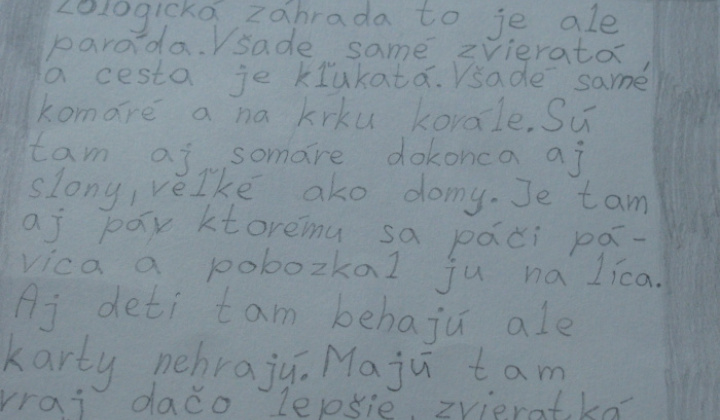 zologická záhrada to je ale
paráda. Všade samé zvieratá
a cesta je kľukatá. Všade samé
komáré a na krku korále. Sú
tam aj somáre dokonca aj
slony, veľké ako domy. Je tam
aj páv ktorému sa páči pá-
vica a pobozkal ju na líca.
Aj deti tam behajú ale
karty nehrajú. Majú tam
vraj dačo lepšie, zvieratká